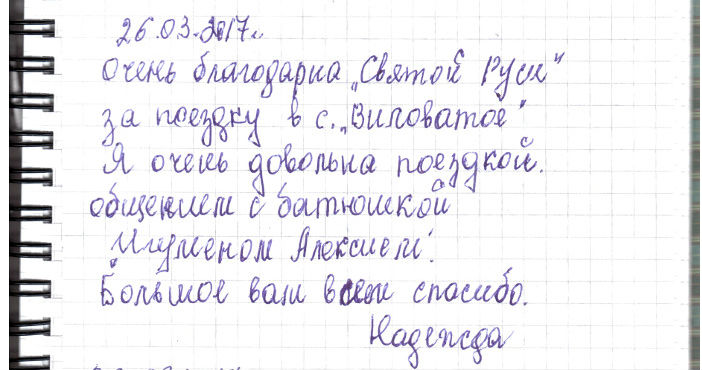 26.03.2017г.
Очень благодарна „Святой Руси"
за поездку в с. „Виловатое"
Я очень довольна поездкой.
общением с батюшкой
Игуменом Алексием.
Большое вам всем спасибо.
Надежда